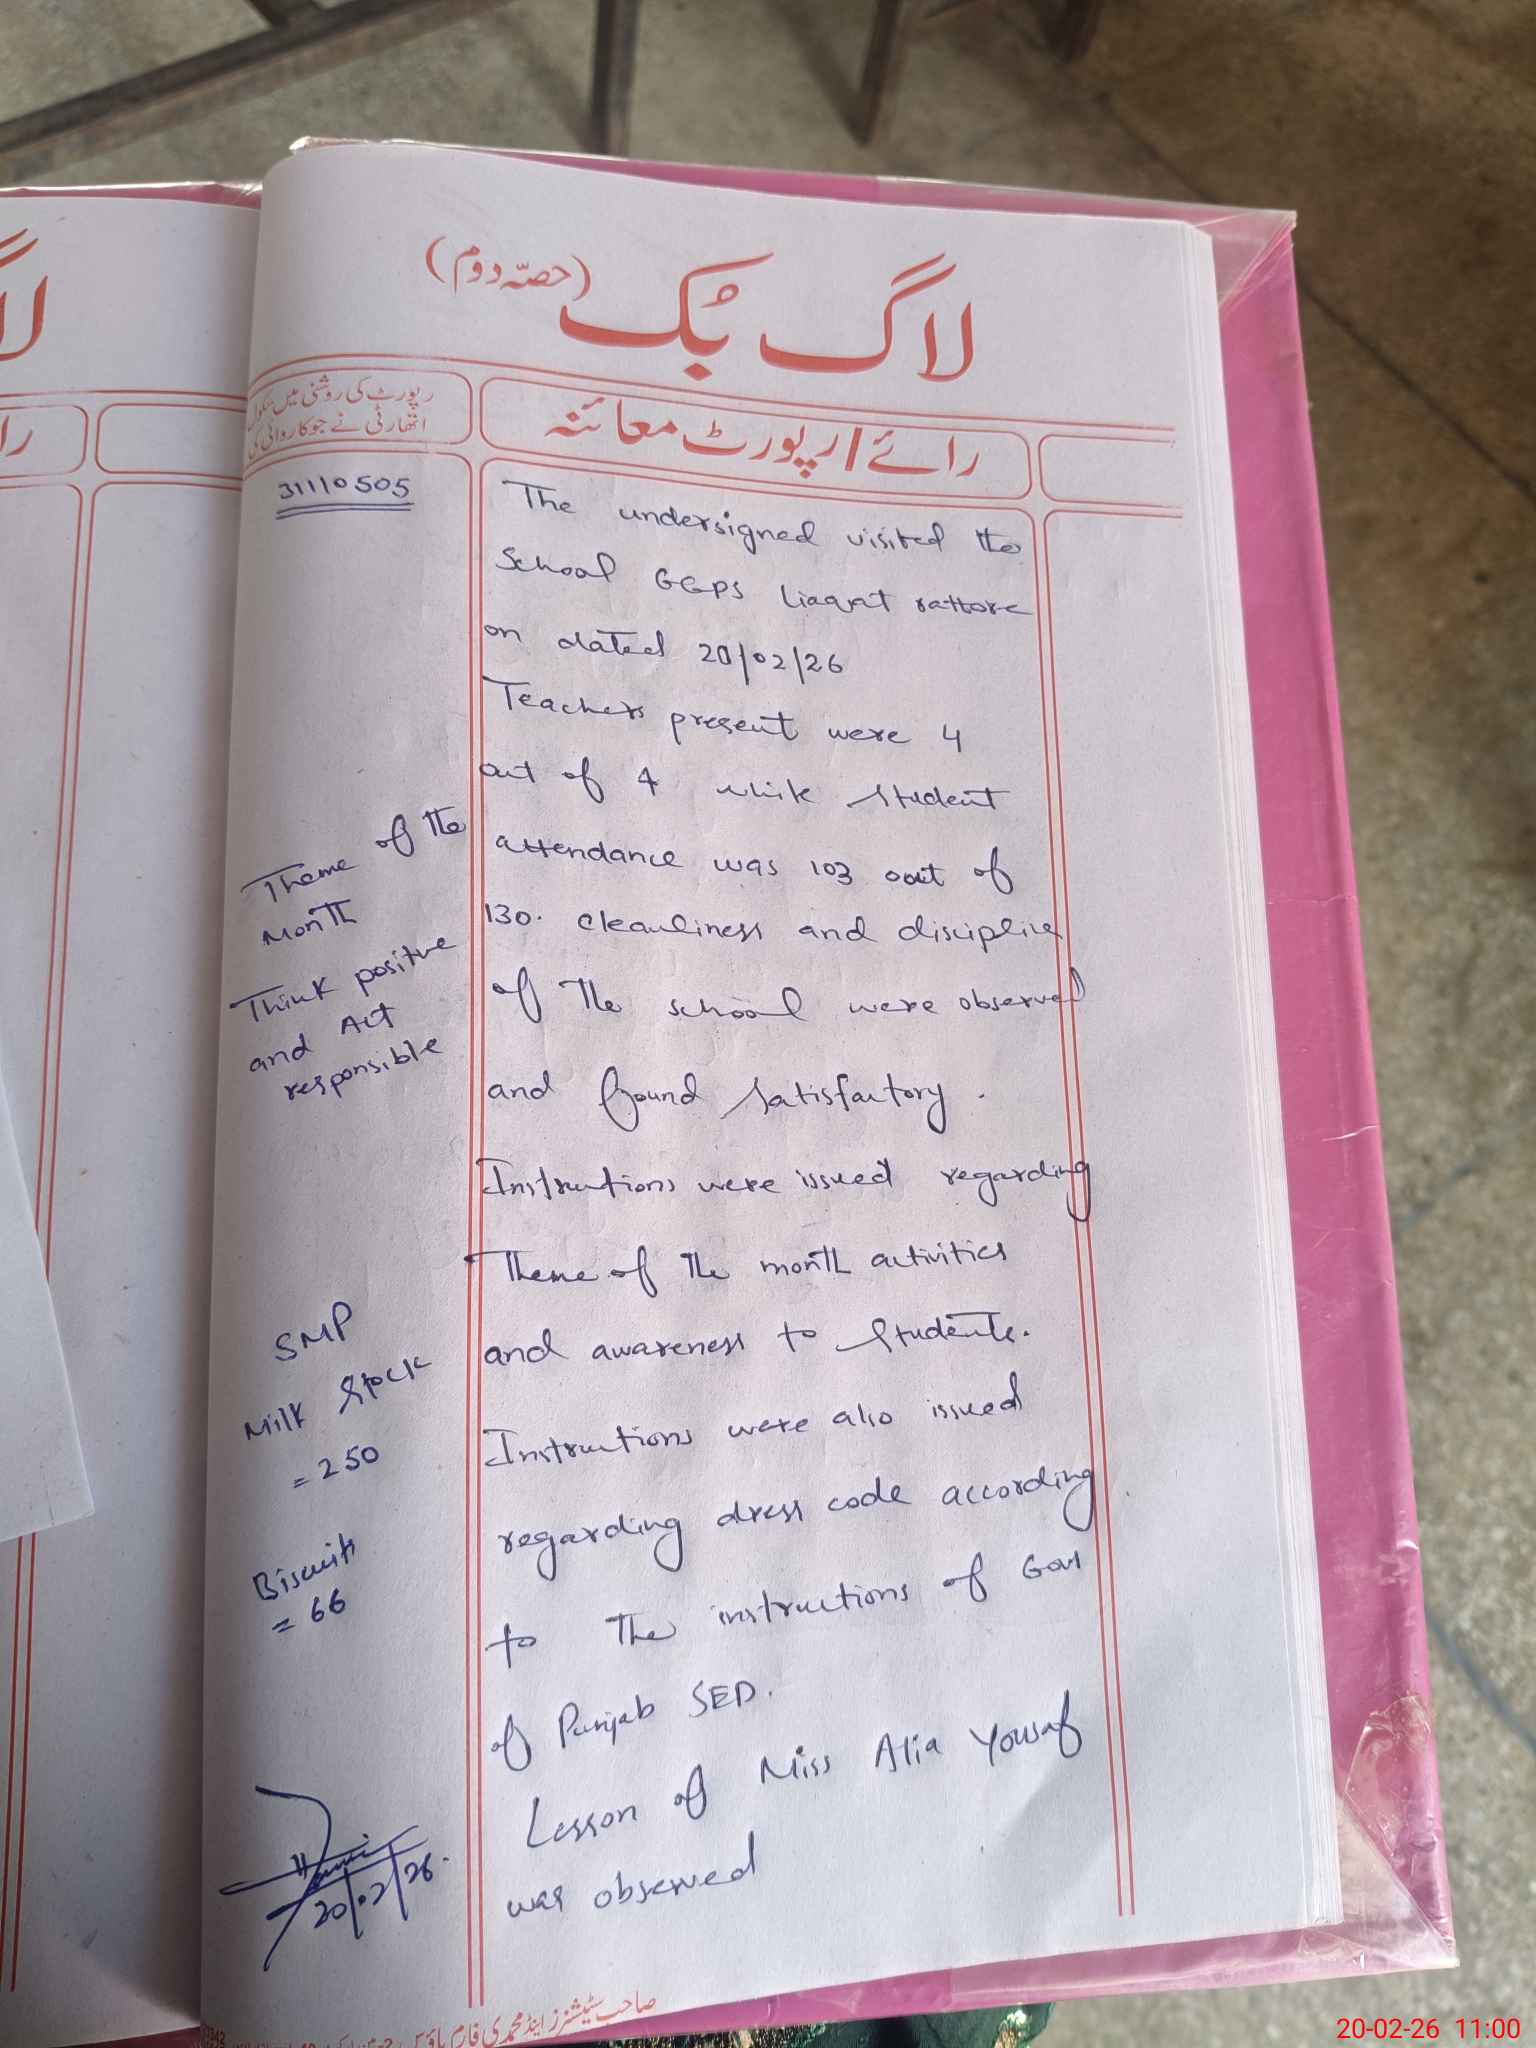 لاگ بُک (حصّہ دوم)
رپورٹ کی روشنی میں سکول
اتھارٹی نے جو کاروائی کی
رائے / رپورٹ معائنہ
31110505
The undersigned visited the
School GGPS Liaqat rattore
on dated 20/02/26
Teachers present were 4
out of 4 while student
attendance was 103 out of
130. cleanliness and discipline
of The school were observed
and found satisfactory.
Instructions were issued regarding
Theme of The month activities
and awareness to students.
Instructions were also issued
regarding dress code according
to The instructions of Govt
of Punjab SED.
Lesson of Miss Alia Yousaf
was observed
Theme of the
Month
Think positive
and Act
responsible
SMP
Milk Stock
= 250
Biscuits
= 66
20/02/26.
صاحب سٹیشنرز اینڈ محمدی فارم ہاؤس
20-02-26 11:00